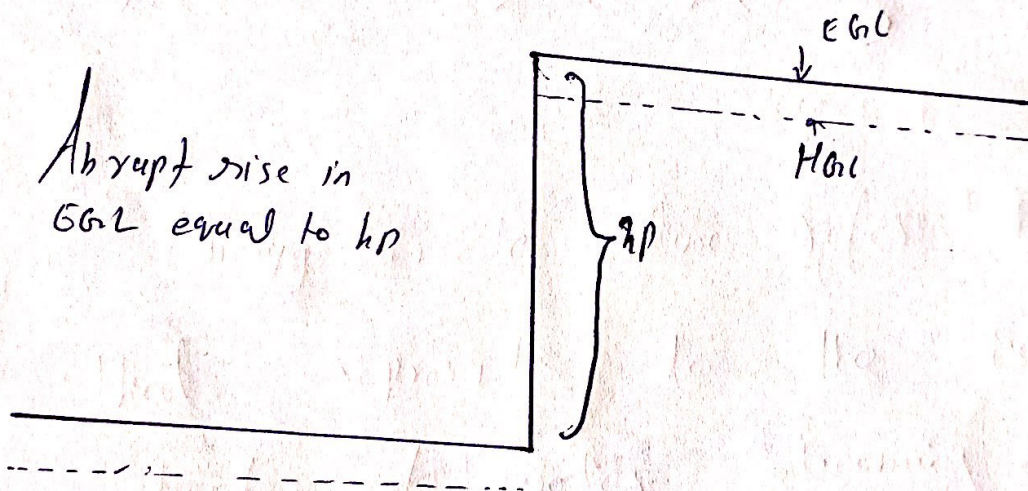 EGL
HGL
Abrupt rise in
EGL equal to hp
hp